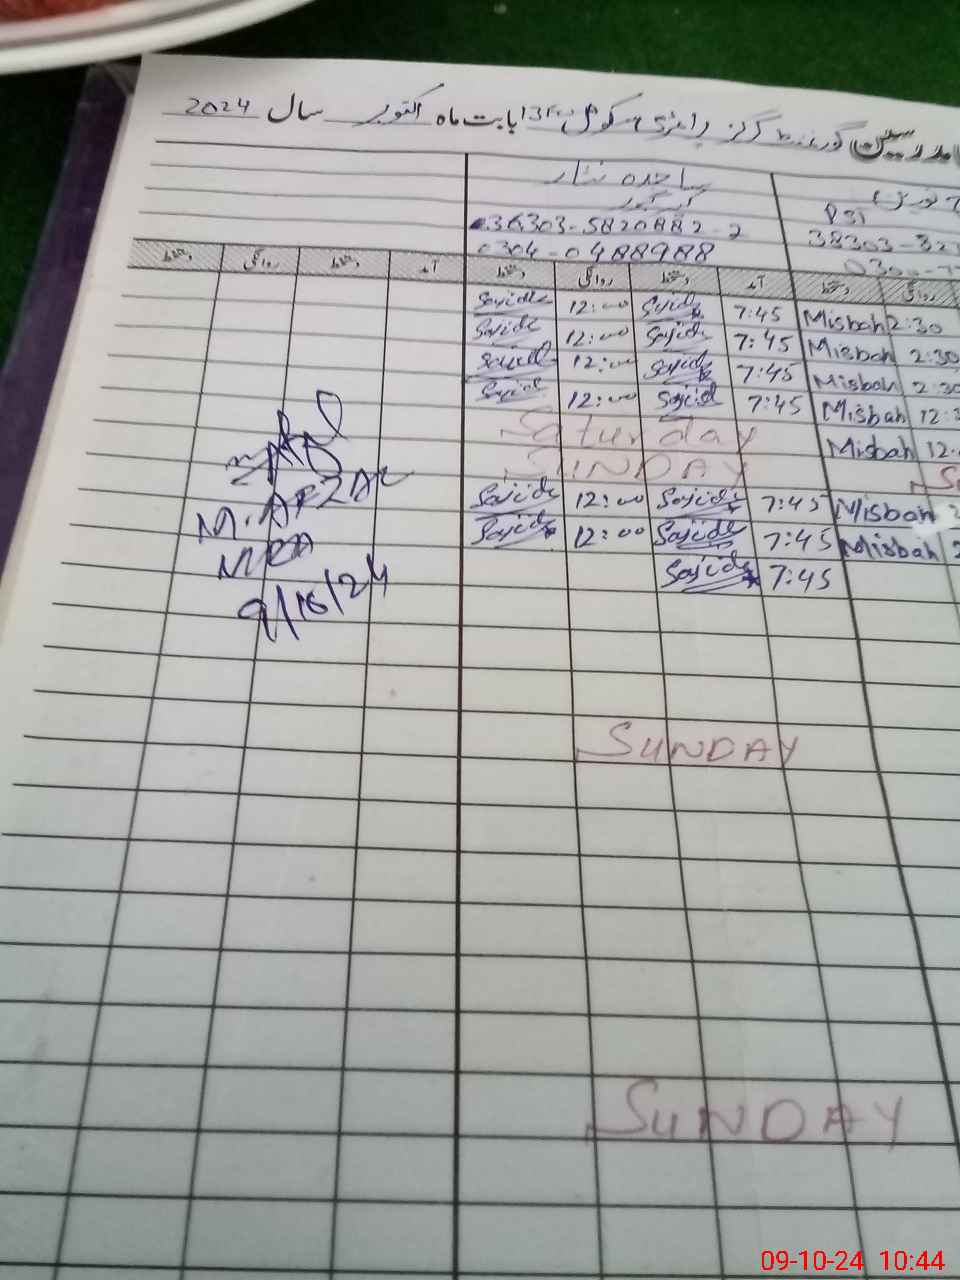 مدرسین گورنمنٹ گرلز پرائمری سکول بابت ماہ اکتوبر سال 2024
ساجدہ نثار
36303-5820882-2
0304-0488988
PST
38303-32
0300-7
دستخط روانگی دستخط آمد دستخط روانگی دستخط آمد دستخط روانگی
Sajida 12:00 Sajida 7:45 Misbah 2:30
Sajida 12:00 Sajida 7:45 Misbah 2:30
Sajida 12:00 Sajida 7:45 Misbah 2:30
Sajida 12:00 Sajida 7:45 Misbah 12:3
Saturday Misbah 12.
SUNDAY S
Sajida 12:00 Sajida 7:45 Misbah 2
Sajida 12:00 Sajida 7:45 Misbah 2
Sajida 7:45
M. AFZAL
MEA
9/10/24
SUNDAY
SUNDAY
09-10-24 10:44